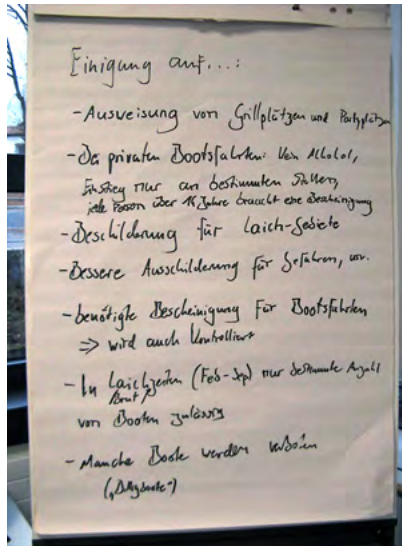 Einigung auf...:
- Ausweisung von Grillplätzen und Partyplätzen
- Bei privaten Bootsfahrten: kein Alkohol,
Einstieg nur an bestimmten Stellen,
jede Person über 16 Jahre braucht eine Bescheinigung
- Beschilderung für Laich-Gebiete
- Bessere Ausschilderung für Gefahren,
- benötigte Bescheinigung für Bootsfahrten
⇒ wird auch kontrolliert
- In Laichzeiten (Feb-Sep) nur bestimmte Anzahl
Brut
von Booten zulässig
- Manche Boote werden verboten